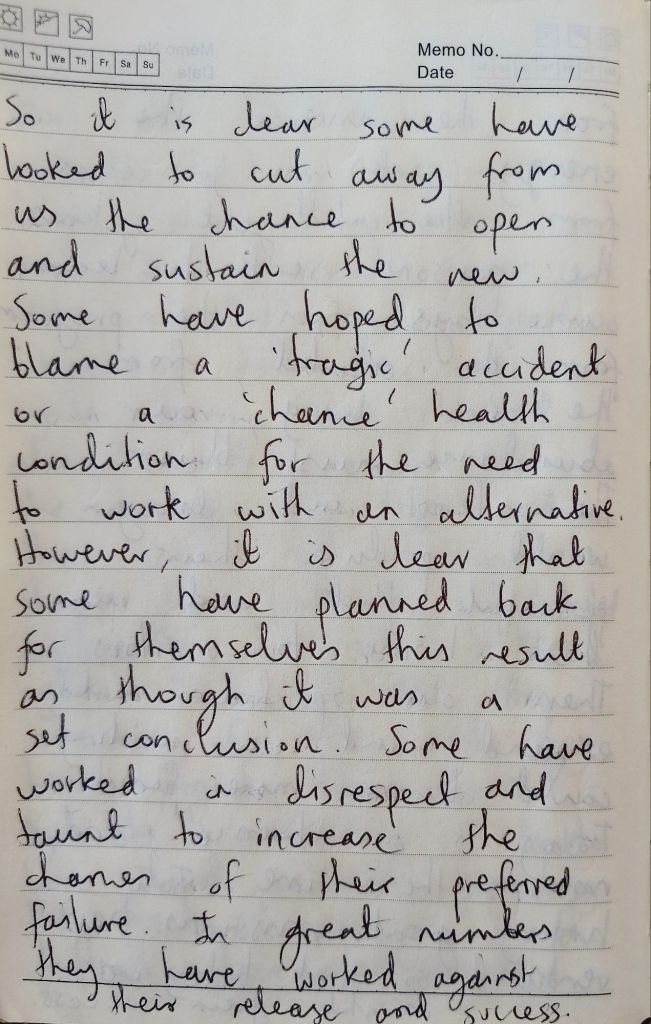 Mo Tu We Th Fr Sa Su
Memo No.
Date / /
So it is clear some have
looked to cut away from
us the chance to open
and sustain the new.
Some have hoped to
blame a 'tragic' accident
or a 'chance' health
condition for the need
to work with an alternative.
However, it is clear that
some have planned back
for themselves this result
as though it was a
set conclusion. Some have
worked in disrespect and
taunt to increase the
chances of their preferred
failure. In great numbers
they have worked against
their release and success.